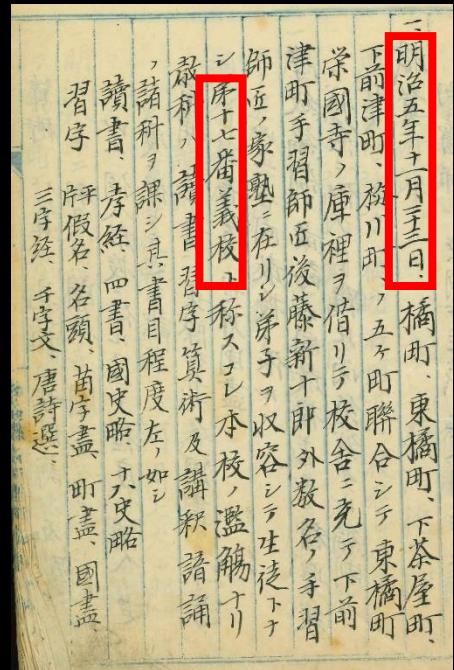 一、明治五年十一月二十三日、橘町、東橘町、下茶屋町、
下前津町、飴川町、ノ五ヶ町聯合シテ東橘町
栄國寺ノ庫裡ヲ借リテ校舎ニ充テ下前
津町手習師匠後藤新十郎外数名ノ手習
師匠ノ家塾ニ在リシ弟子ヲ収容シテ生徒トナ
シ第十七番義校ト称スコレ本校ノ濫觴ナリ
教科ハ讀書習字算術及講釈諳誦
ノ諸科ヲ課シ其書目程度左ノ如シ
讀書、孝経、四書、國史略、十八史略
習字
平假名、名頭、苗字盡、町盡、國盡
片
三字経、千字文、唐詩選、